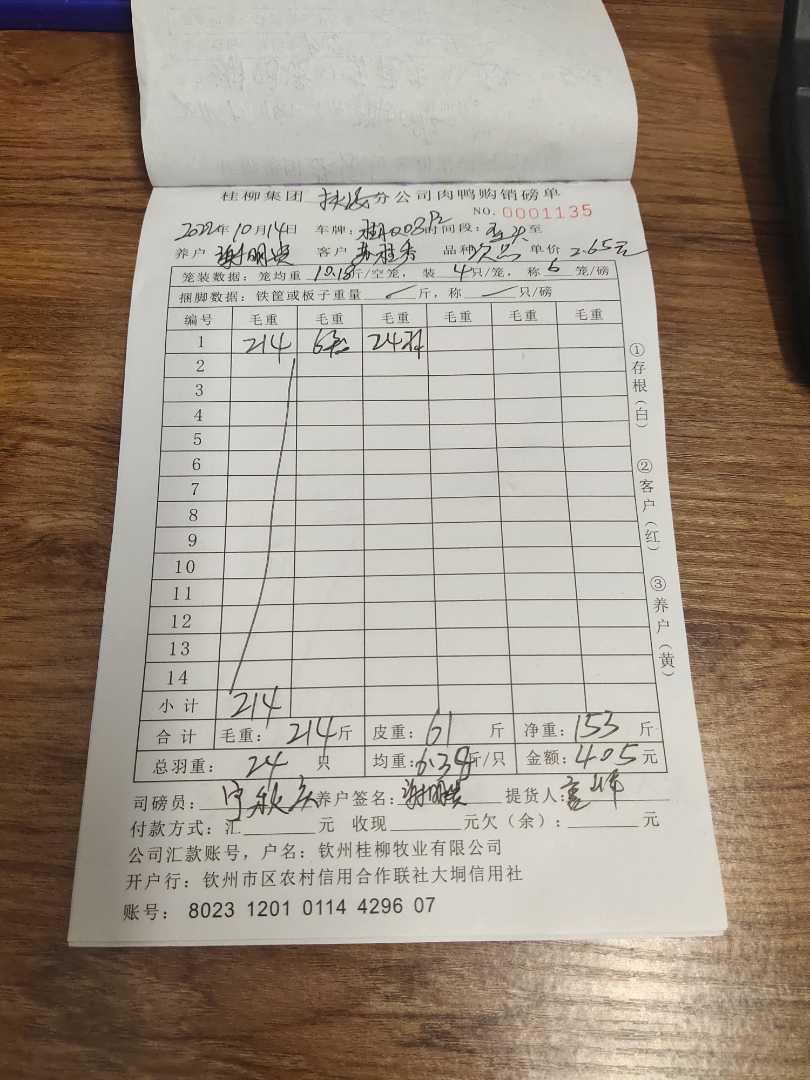 桂柳集团 分公司肉鸭购销磅单
NO. 0001135
2022年10月14日 车牌: 时间段: 至
养户 谢明 客户 苏桂秀 品种 次品 单价 2.65元
笼装数据：笼均重 10.18斤/空笼，装 4只/笼，称 6 笼/磅
捆脚数据：铁筐或板子重量 ✓ 斤，称 只/磅
编号 毛重 毛重 毛重 毛重 毛重 毛重
1 214 6 24
2
3
4
5
6
7
8
9
10
11
12
13
14
小计 214
合计 毛重：214斤 皮重：61 斤 净重：153 斤
总羽重：24 只 均重：6.38斤/只 金额：405元
司磅员： 养户签名：谢明 提货人：
付款方式：汇 元 收现 元欠（余）： 元
公司汇款账号，户名：钦州桂柳牧业有限公司
开户行：钦州市区农村信用合作联社大垌信用社
账号： 8023 1201 0114 4296 07
①存根（白）
②客户（红）
③养户（黄）